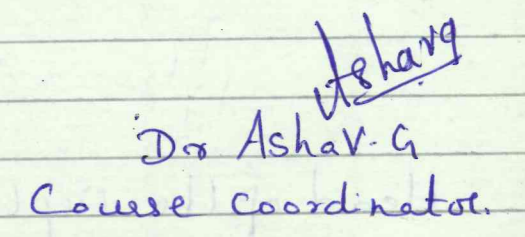 Ashavg
Dr AshaV.G
Course coordinator.